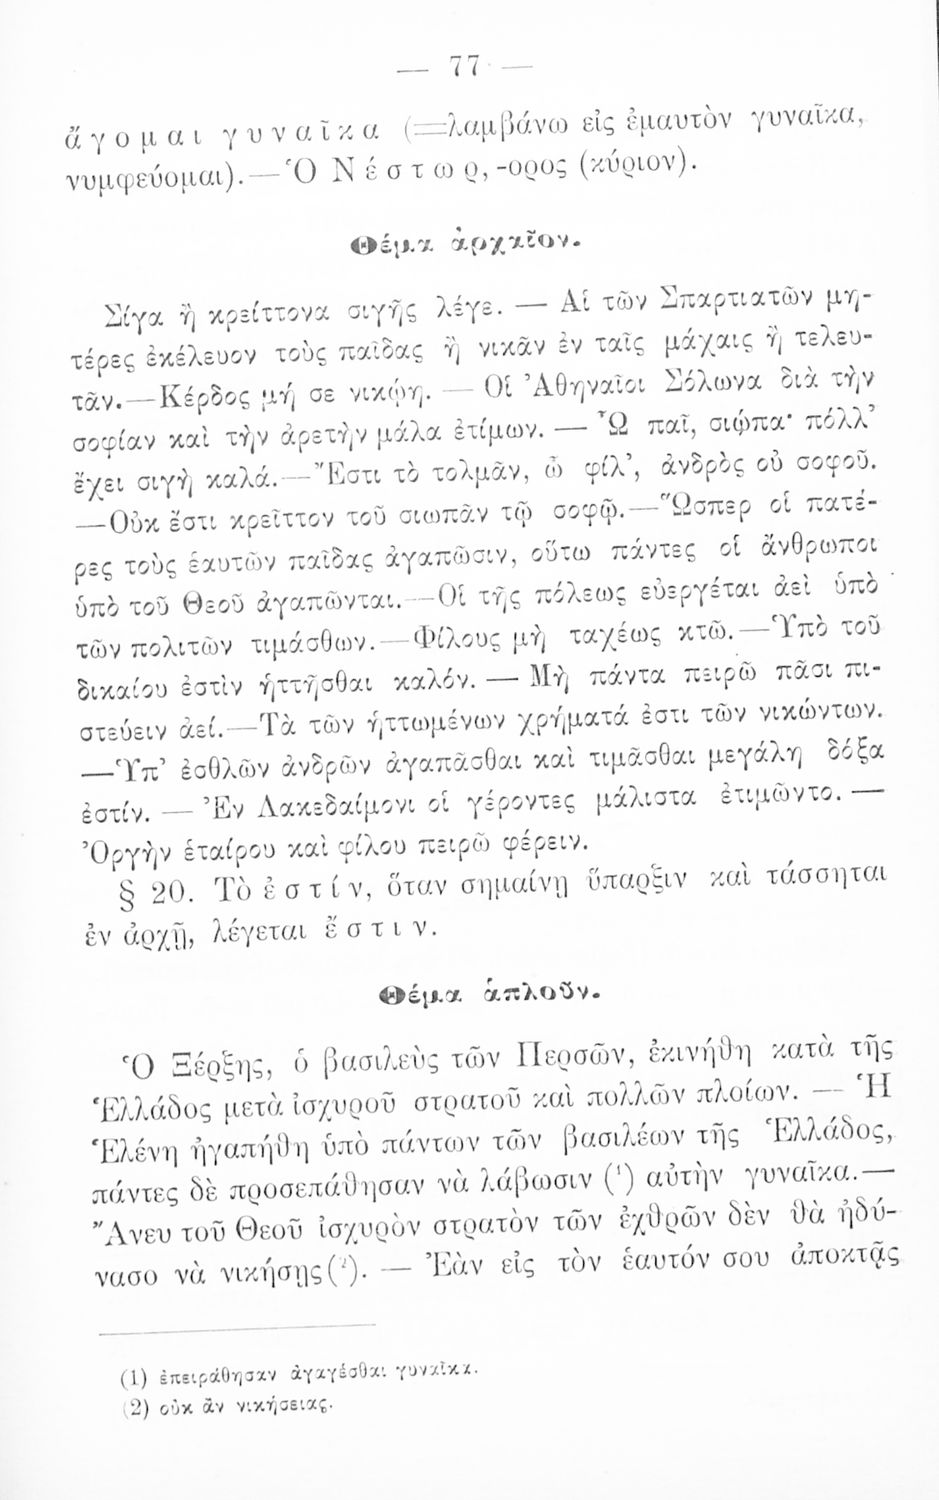 — 77 —
ἄγομαι γυναῖκα (=λαμβάνω εἰς ἐμαυτὸν γυναῖκα,
νυμφεύομαι).—Ὁ Νέστωρ,-ορος (κύριον).
Θέμα ἀρχαῖον.
Σίγα ἢ κρείττονα σιγῆς λέγε. — Αἱ τῶν Σπαρτιατῶν μη-
τέρες ἐκέλευον τοὺς παῖδας ἢ νικᾶν ἐν ταῖς μάχαις ἢ τελευ-
τᾶν.—Κέρδος μή σε νικῴη. — Οἱ Ἀθηναῖοι Σόλωνα διὰ τὴν
σοφίαν καὶ τὴν ἀρετὴν μάλα ἐτίμων. — Ὦ παῖ, σιώπα· πόλλ’
ἔχει σιγὴ καλά.—Ἔστι τὸ τολμᾶν, ὦ φίλ’, ἀνδρὸς οὐ σοφοῦ.
—Οὐκ ἔστι κρεῖττον τοῦ σιωπᾶν τῷ σοφῷ.—Ὥσπερ οἱ πατέ-
ρες τοὺς ἑαυτῶν παῖδας ἀγαπῶσιν, οὕτω πάντες οἱ ἄνθρωποι
ὑπὸ τοῦ Θεοῦ ἀγαπῶνται.—Οἱ τῆς πόλεως εὐεργέται ἀεὶ ὑπὸ
τῶν πολιτῶν τιμάσθων.—Φίλους μὴ ταχέως κτῶ.—Ὑπὸ τοῦ
δικαίου ἐστὶν ἡττῆσθαι καλόν. — Μὴ πάντα πειρῶ πᾶσι πι-
στεύειν ἀεί.—Τὰ τῶν ἡττωμένων χρήματά ἐστι τῶν νικώντων.
—Ὑπ’ ἐσθλῶν ἀνδρῶν ἀγαπᾶσθαι καὶ τιμᾶσθαι μεγάλη δόξα
ἐστίν. — Ἐν Λακεδαίμονι οἱ γέροντες μάλιστα ἐτιμῶντο. —
Ὀργὴν ἑταίρου καὶ φίλου πειρῶ φέρειν.
§ 20. Τὸ ἐστίν, ὅταν σημαίνῃ ὕπαρξιν καὶ τάσσηται
ἐν ἀρχῇ, λέγεται ἔστιν.
Θέμα ἁπλοῦν.
Ὁ Ξέρξης, ὁ βασιλεὺς τῶν Περσῶν, ἐκινήθη κατὰ τῆς
Ἑλλάδος μετὰ ἰσχυροῦ στρατοῦ καὶ πολλῶν πλοίων. — Ἡ
Ἑλένη ἠγαπήθη ὑπὸ πάντων τῶν βασιλέων τῆς Ἑλλάδος,
πάντες δὲ προσεπάθησαν νὰ λάβωσιν (¹) αὐτὴν γυναῖκα.—
Ἄνευ τοῦ Θεοῦ ἰσχυρὸν στρατὸν τῶν ἐχθρῶν δὲν θὰ ἠδύ-
νασο νὰ νικήσῃς(²). — Ἐὰν εἰς τὸν ἑαυτόν σου ἀποκτᾷς
(1) ἐπειράθησαν ἀγαγέσθαι γυναῖκα.
(2) οὐκ ἂν νικήσειας.